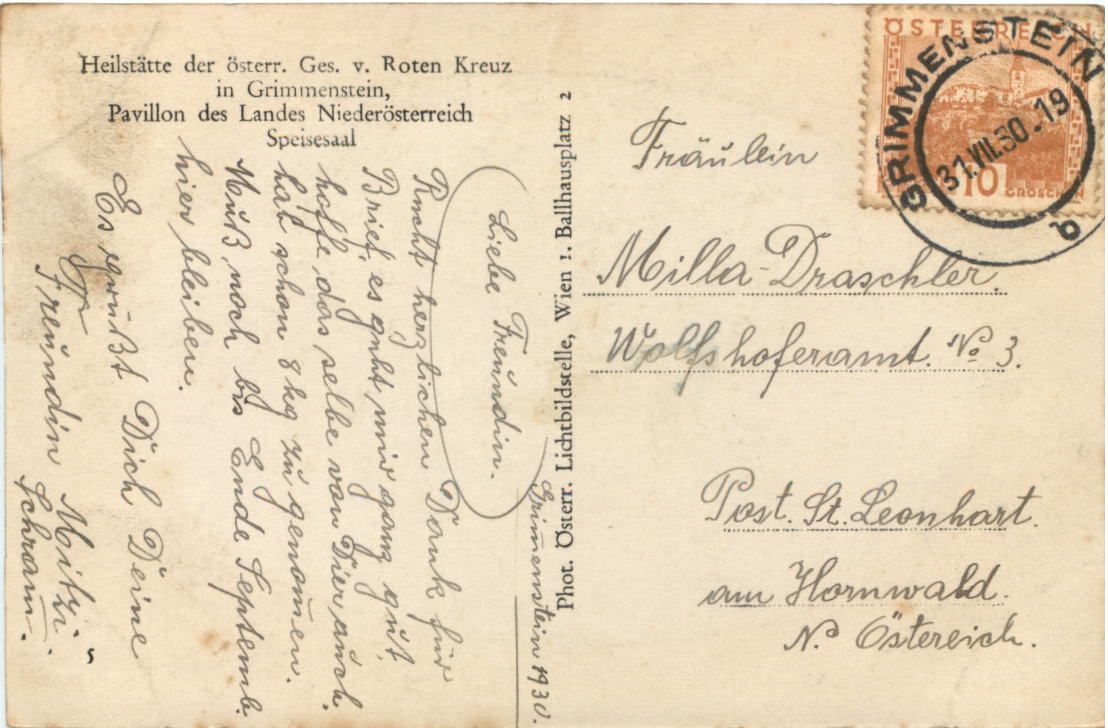 Heilstätte der österr. Ges. v. Roten Kreuz
in Grimmenstein,
Pavillon des Landes Niederösterreich
Speisesaal
Grim̅enstein 1930.
Liebe Freundin.
Recht herzlichen Dank für
Brief, es geht mir ganz gut,
hoffe das selbe von Dier auch.
hab schon 8 kg zu genom̅en.
Muß noch bis Ende Septemb.
hier bleiben.
Es grüßt Dich Deine
Freundin Mitzi
Schram̅.
Phot. Österr. Lichtbildstelle, Wien 1. Ballhausplatz 2
ÖSTERREICH
10
GROSCHEN
GRIMMENSTEIN
31.VII.30.19
b
Fräulein
Milla Draschler.
Wolfshoferamt. No 3.
Post. St. Leonhart.
am Hornwald.
N. Östereich.